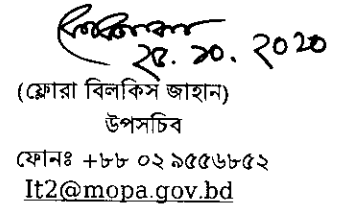 ২৫. ১০. ২০২০
(ফ্লোরা বিলকিস জাহান)
উপসচিব
ফোনঃ +৮৮ ০২ ৯৫৫৬৮৫২
It2@mopa.gov.bd